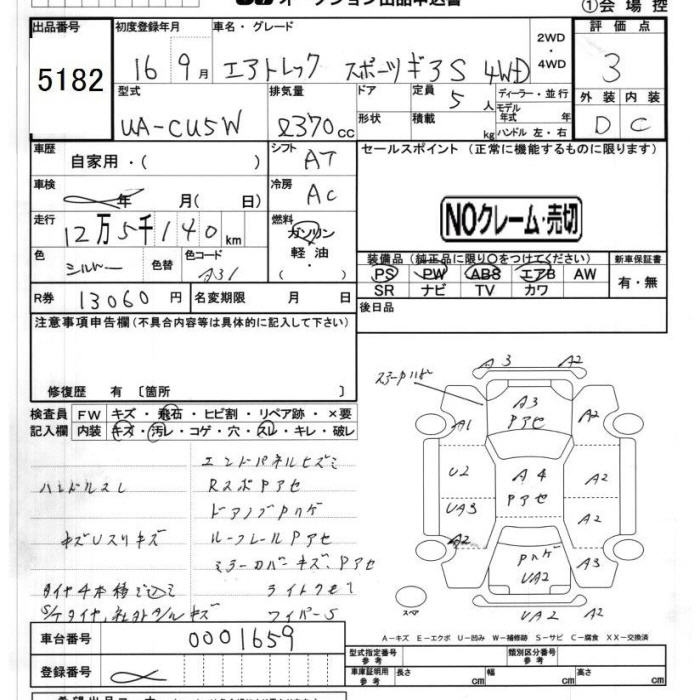 オークション出品申込書
①会場控
出品番号 初度登録年月 車名・グレード 2WD・4WD 評価点
5182 16年9月 エアトレック スポーツギアS 4WD 3
型式 排気量 ドア 定員 5人 ディーラー・並行 外装 内装
UA-CU5W 2370cc 形状 積載 kg モデル年式 年 ハンドル 左・右 D C
車歴 自家用・( ) シフト AT セールスポイント (正常に機能するものに限ります)
車検 年 月( 日) 冷房 AC
走行 12万5千140km 燃料 ガソリン 軽油・
NOクレーム・売切
色 シルバー 色替 色コード A31
装備品(純正品に限り○をつけてください) 新車保証書
PS PW ABS エアB AW 有・無
SR ナビ TV カワ
R券 13060円 名変期限 月 日 後日品
注意事項申告欄(不具合内容等は具体的に記入して下さい)
修復歴 有〔箇所 〕
検査員 FW キズ・飛石・ヒビ割・リペア跡・×要
記入欄 内装 キズ・汚レ・コゲ・穴・スレ・キレ・破レ
エンドパネルヒズミ
ハンドルスレ RスポPアセ
ドアノブPハゲ
キズUスリキズ ルーフレールPアセ
ミラーカバーキズ、Pアセ
タイヤ4本積込ミ
ワイパーS
A3 A2
A3 Pアセ
A1 A2
U2 A4 Pアセ A2
UA3 A2
A2 Pハゲ UA2 A3
スペア UA2
A−キズ E−エクボ U−凹み W−補修跡 S−サビ C−腐食 XX−交換済
車台番号 0001659
型式指定番号 参考 類別区分番号 参考
登録番号
車庫証明用 参考 長さ cm 幅 cm 高さ cm